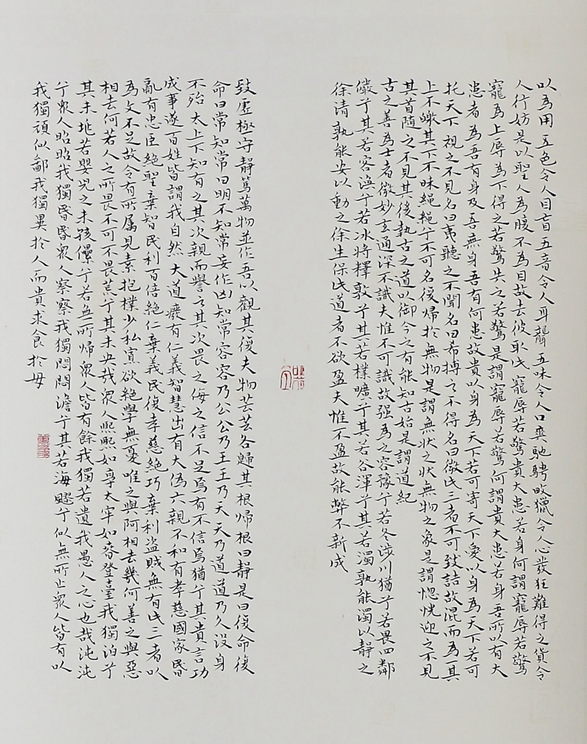 以為用五色令人目盲五音令人耳聾五味令人口爽馳騁畋獵令人心發狂難得之貨令
人行妨是以聖人為腹不為目故去彼取此寵辱若驚貴大患若身何謂寵辱若驚
寵為上辱為下得之若驚失之若驚是謂寵辱若驚何謂貴大患若身吾所以有大
患者為吾有身及吾無身吾有何患故貴以身為天下若可寄天下愛以身為天下若可
托天下視之不見名曰夷聽之不聞名曰希搏之不得名曰微此三者不可致詰故混而為一其
上不皦其下不昧繩繩兮不可名復歸於無物是謂無狀之狀無物之象是謂惚恍迎之不見
其首隨之不見其後執古之道以御今之有能知古始是謂道紀
古之善為士者微妙玄通深不識夫惟不可識故強為之容豫兮若冬涉川猶兮若畏四鄰
儼兮其若容渙兮若冰將釋敦兮其若樸曠兮其若谷渾兮其若濁孰能濁以靜之
徐清孰能安以動之徐生保此道者不欲盈夫惟不盈故能蔽不新成
致虛極守靜篤萬物並作吾以觀其復夫物芸芸各歸其根歸根曰靜是曰復命復
命曰常知常曰明不知常妄作凶知常容容乃公公乃王王乃天天乃道道乃久沒身
不殆太上下知有之其次親而譽之其次畏之侮之信不足焉有不信焉猶兮其貴言功
成事遂百姓皆謂我自然大道廢有仁義智慧出有大偽六親不和有孝慈國家昏
亂有忠臣絕聖棄智民利百倍絕仁棄義民復孝慈絕巧棄利盜賊無有此三者以
為文不足故令有所屬見素抱樸少私寡欲絕學無憂唯之與阿相去幾何善之與惡
相去何若人之所畏不可不畏荒兮其未央哉眾人熙熙如享太牢如春登臺我獨泊兮
其未兆若嬰兒之未孩儽兮若無所歸眾人皆有餘我獨若遺我愚人之心也哉沌沌
兮眾人昭昭我獨昏昏眾人察察我獨悶悶澹兮其若海飂兮似無所止眾人皆有以
我獨頑似鄙我獨異於人而貴求食於母